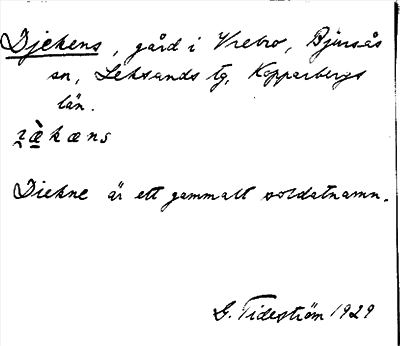 Djekens, gård i Vrebro, Bjursås
sn, Leksands tg, Kopparbergs
län.
Diekne är ett gammalt soldatnamn.
G. Tideström 1929